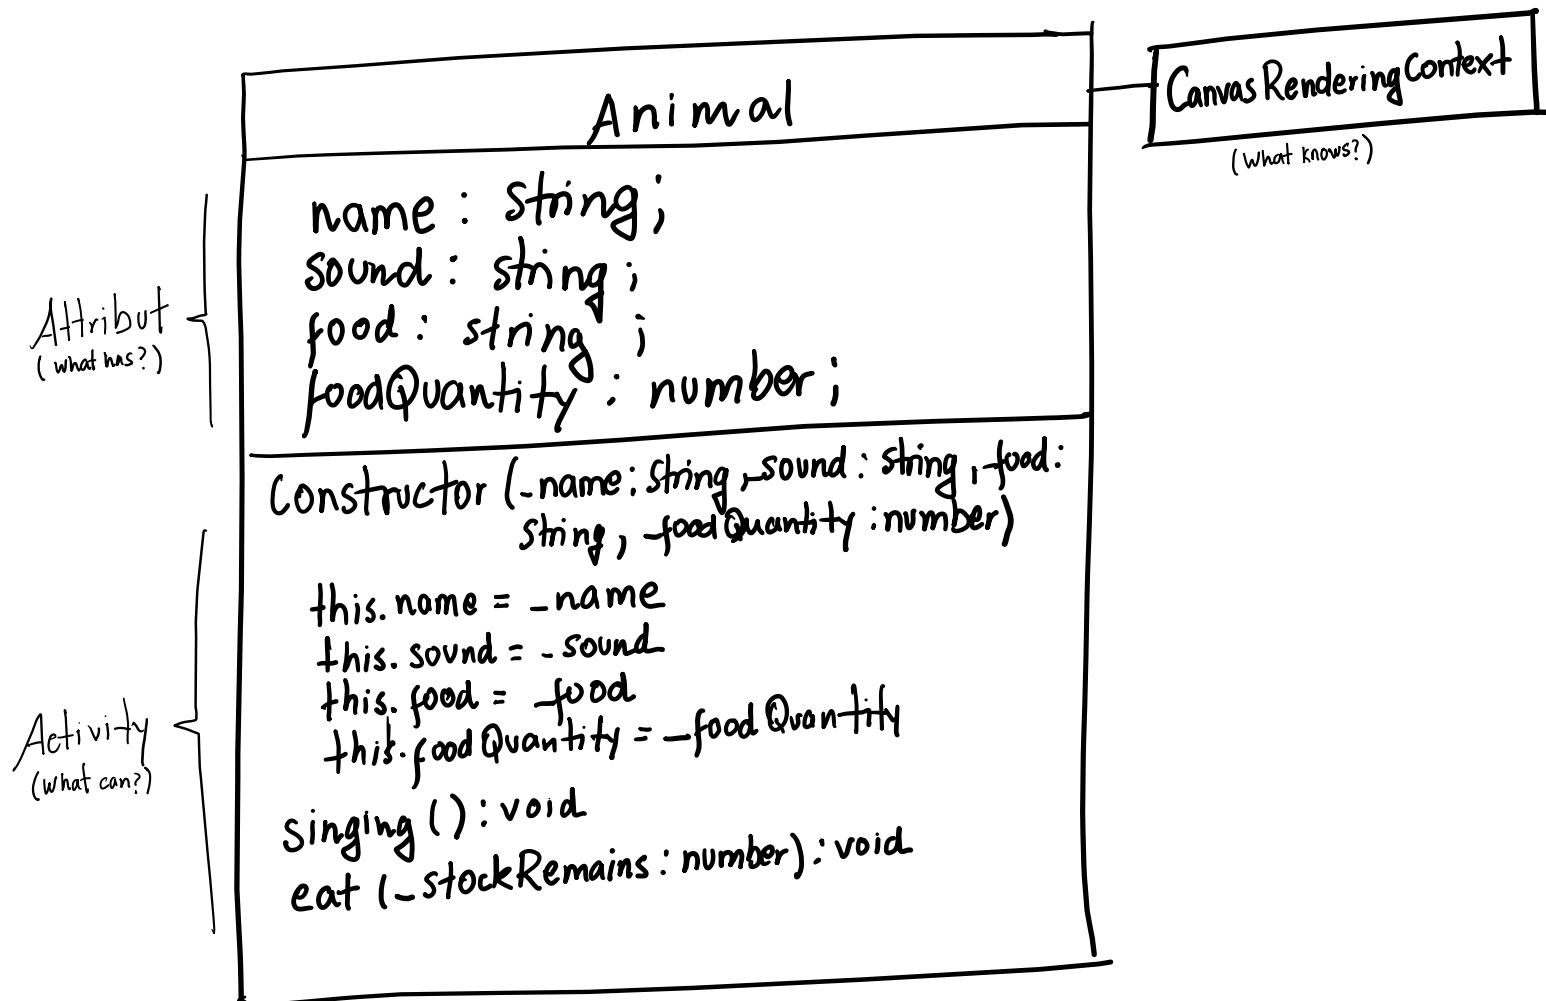 Animal
CanvasRenderingContext
(what knows?)
name : string;
sound : string ;
food : string ;
foodQuantity : number ;
Attribut
(what has?)
Constructor (_name: string, _sound : string, _food:
string, _foodQuantity :number)
this.name = _name
this.sound = _sound
this.food = _food
this.foodQuantity = _foodQuantity
Activity
(what can?)
singing () : void
eat (_stockRemains : number) : void